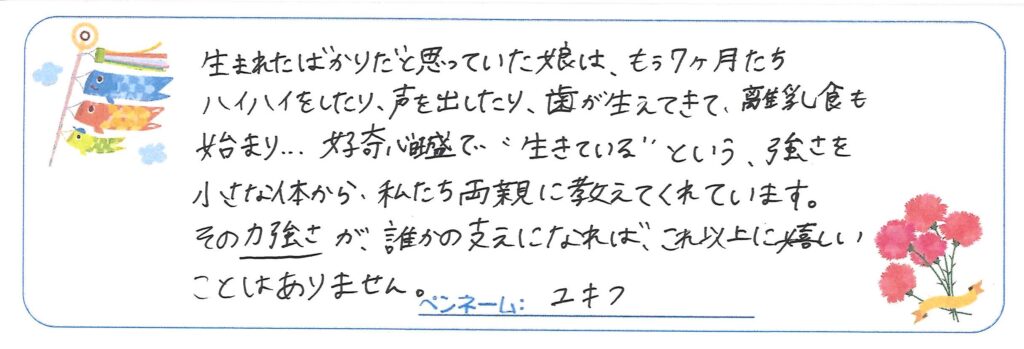 生まれたばかりだと思っていた娘は、もう7ヶ月たち
ハイハイをしたり、声を出したり、歯が生えてきて、離乳食も
始まり… 好奇心旺盛で “生きている” という、強さを
小さな体から、私たち両親に教えてくれています。
その力強さが、誰かの支えになれば、これ以上に嬉しい
ことはありません。
ペンネーム: ユキフ